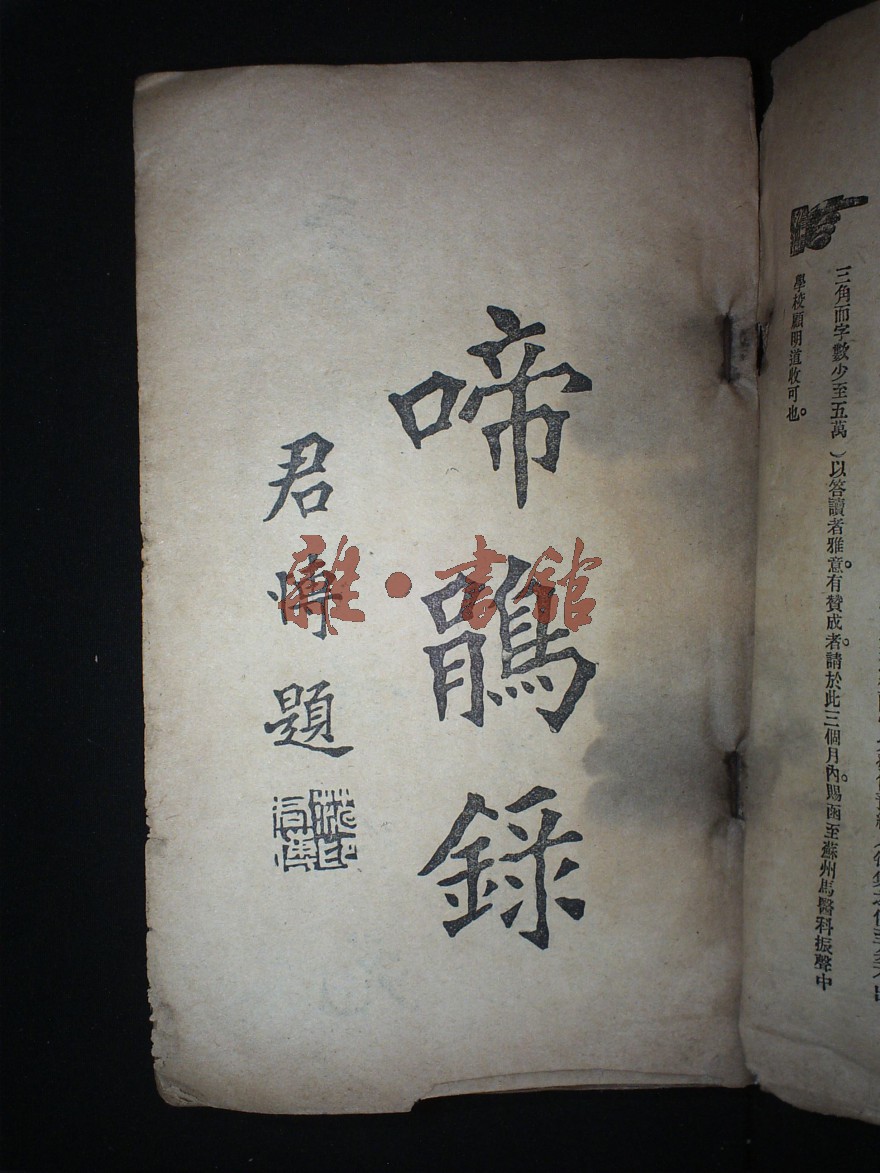 三角而字數少至五萬）以答讀者雅意。有贊成者。請於此三個月內。賜函至蘇州馬醫科振聲中
學校顧明道收可也。
啼鵑錄
君博題
雜·書館